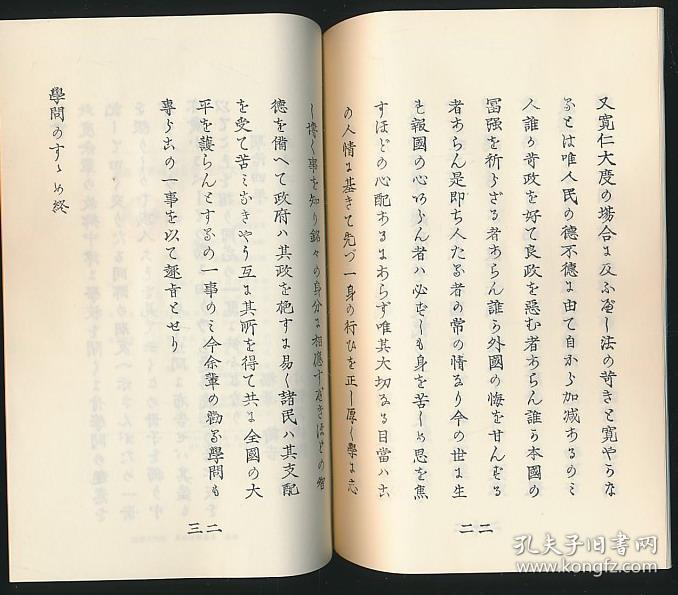 又寛仁大度の場合に及ふべし法の苛きと寛やかな
るとは唯人民の徳不徳に由て自から加減あるのミ
人誰か苛政を好て良政を悪む者あらん誰か本國の
冨强を祈らざる者あらん誰か外國の侮を甘んずる
者あらん是即ち人たる者の常の情なり今の世に生
も報國の心あらん者ハ必ずしも身を苦しめ思を焦
すほどの心配あるにあらず唯其大切なる目當ハこ
の人情に基きて先づ一身の行ひを正し厚く學に志
し博く事を知り銘々の身分に相應すべきほどの智
德を備へて政府ハ其政を施すに易く諸民ハ其支配
を受て苦ミなきやう互に其所を得て共に全國の大
平を護らんとするの一事のミ今余輩の勸る學問も
專らこの一事を以て趣旨とせり
學問のすゝめ終
二二
二三
孔夫子旧书网
www.kongfz.com